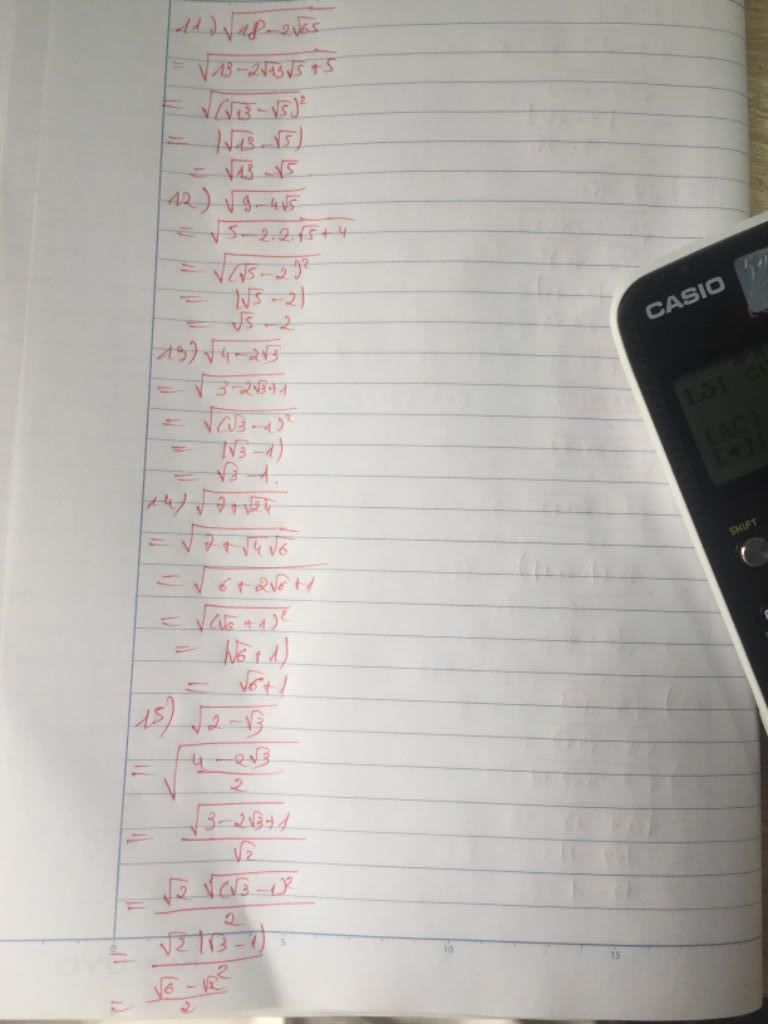 11) √(18-2√65)
= √(13-2√13√5+5)
= √((√13-√5)²)
= |√13-√5|
= √13-√5
12) √(9-4√5)
= √(5-2.2.√5+4)
= √((√5-2)²)
= |√5-2|
= √5-2
13) √(4-2√3)
= √(3-2√3+1)
= √((√3-1)²)
= |√3-1|
= √3-1.
14) √(7+√24)
= √(7+√4√6)
= √(6+2√6+1)
= √((√6+1)²)
= |√6+1|
= √6+1
15) √(2-√3)
= √((4-2√3)/2)
= √(3-2√3+1)/√2
= √2 √((√3-1)²)/2
= √2 |√3-1|/2
= (√6-√2)/2
0 5 10 15
CASIO
[AC]
SHIFT